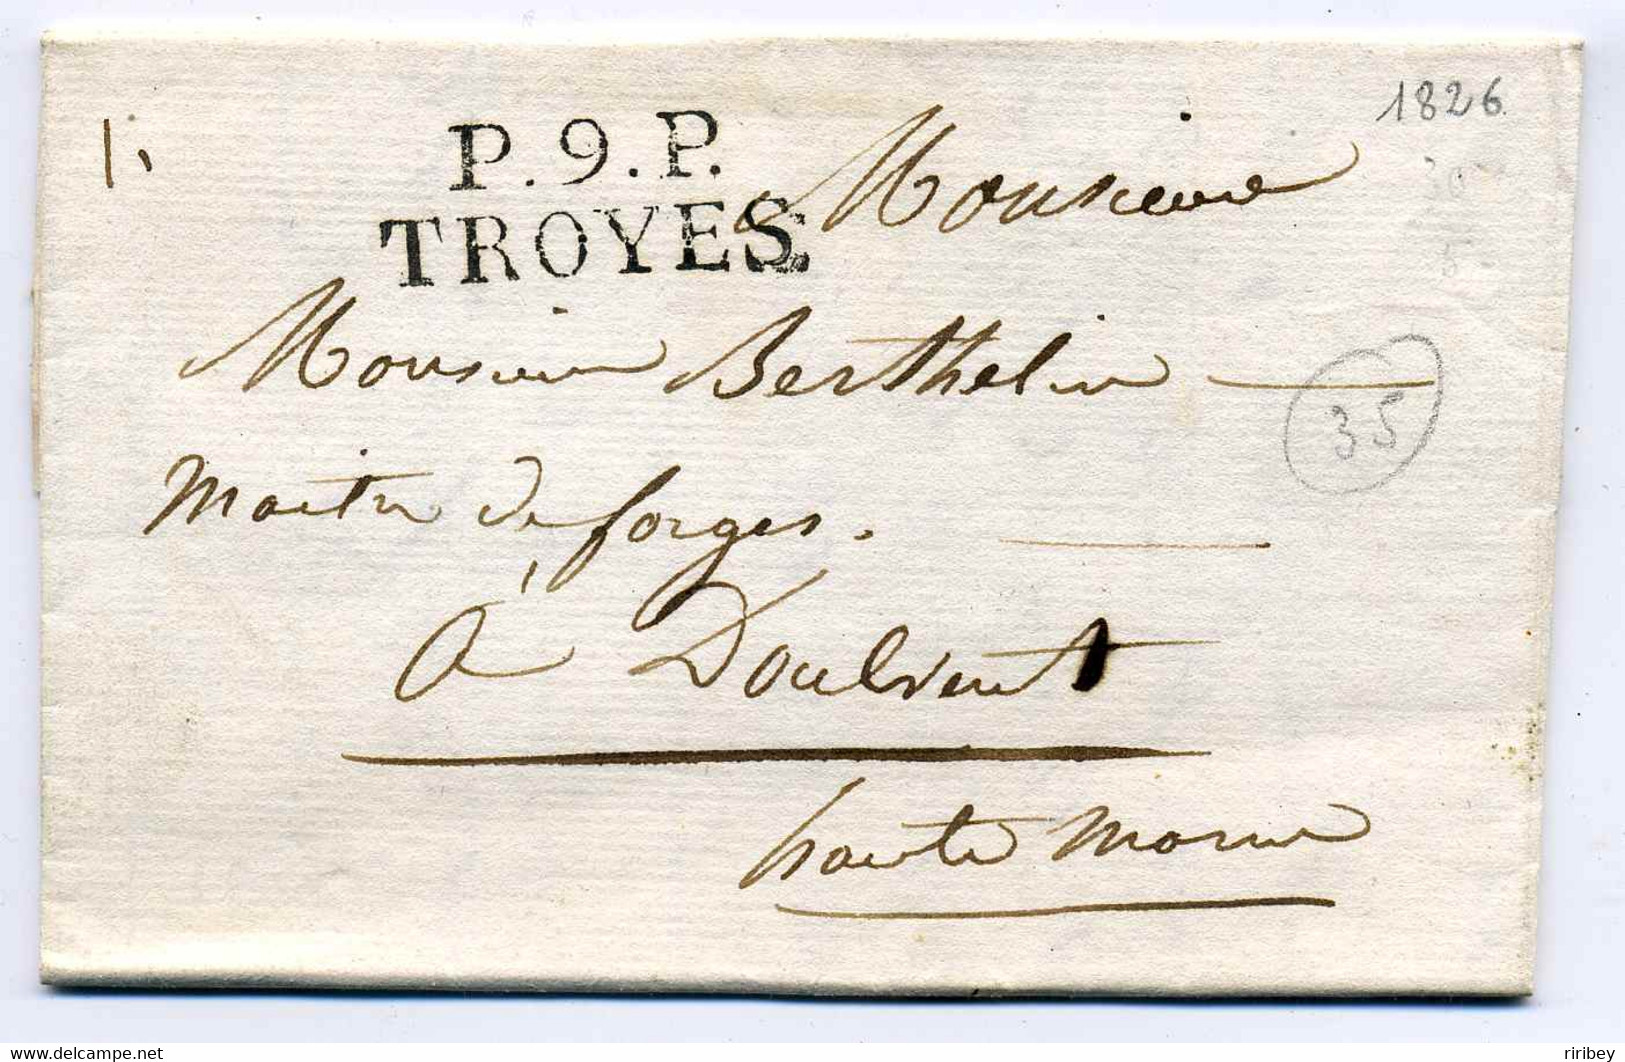 1826
P.9.P.
TROYES.
Monsieur
Monsieur Berthelin
35
Maitre de forges.
à Doulevent
haute Marne
delcampe.net
riribey